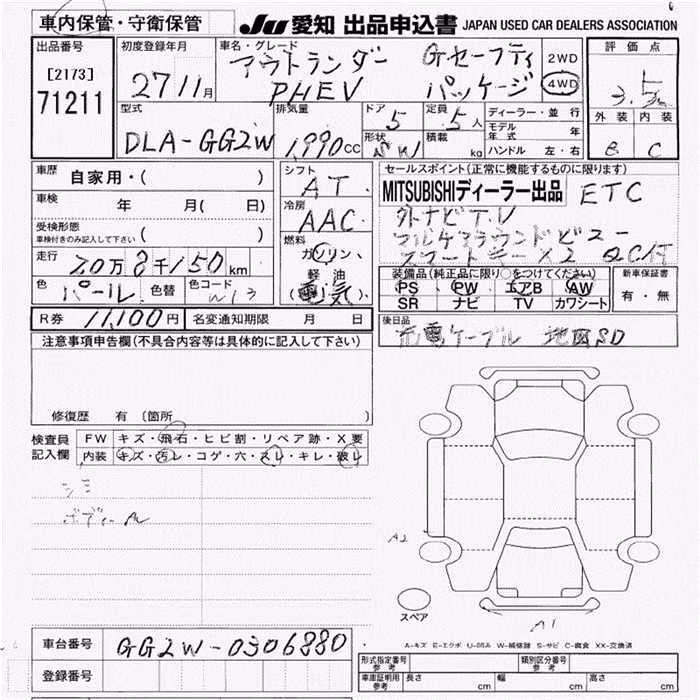 車内保管・守衛保管
JU 愛知 出品申込書 JAPAN USED CAR DEALERS ASSOCIATION
出品番号
[2173]
71211
初度登録年月
27 11月
車名・グレード
アウトランダー Gセーフティ
PHEV パッケージ
2WD
4WD
評価点
3.5
外装 内装
B C
型式
DLA-GG2W
排気量
1,990cc
ドア 5
形状 SW
定員 5人
積載 kg
ディーラー・並行
モデル年式 年
ハンドル 左・右
車歴
自家用・( )
車検
年 月( 日)
受検形態
車検付きのみ記入して下さい ( )
走行
20万8千150km
色 パール 色替 色コード W13
R券 11,100円 名変通知期限 月 日
シフト
AT
冷房
AAC
燃料
ガソリン
軽油
(電気)
セールスポイント(正常に機能するものに限ります)
MITSUBISHIディーラー出品 ETC
外ナビTV
マルチアラウンドビュー
スマートキー×2 QC付
装備品(純正品に限り○をつけてください)
PS PW エアB AW
SR ナビ TV カワシート
新車保証書
有・無
後日品
充電ケーブル 地図SD
注意事項申告欄(不具合内容等は具体的に記入して下さい)
修復歴 有(箇所
検査員記入欄
FW キズ・飛石・ヒビ割・リペア跡・X要
内装 キズ・汚レ・コゲ・穴・スレ・キレ・破レ
シミ
A2
A1
スペア
A-キズ E-エクボ U-凹み W-補修跡 S-サビ C-腐食 XX-交換済
車台番号 GG2W-0306880
登録番号
形式指定番号 参考 類別区分番号 参考
車庫証明用 参考 長さ cm 幅 cm 高さ cm